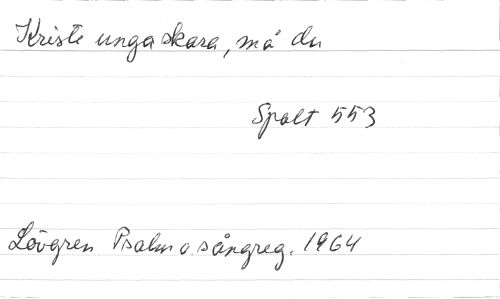 Kriste unga skara, må du
Spalt 553
Lövgren Psalm o. sångreg. 1964